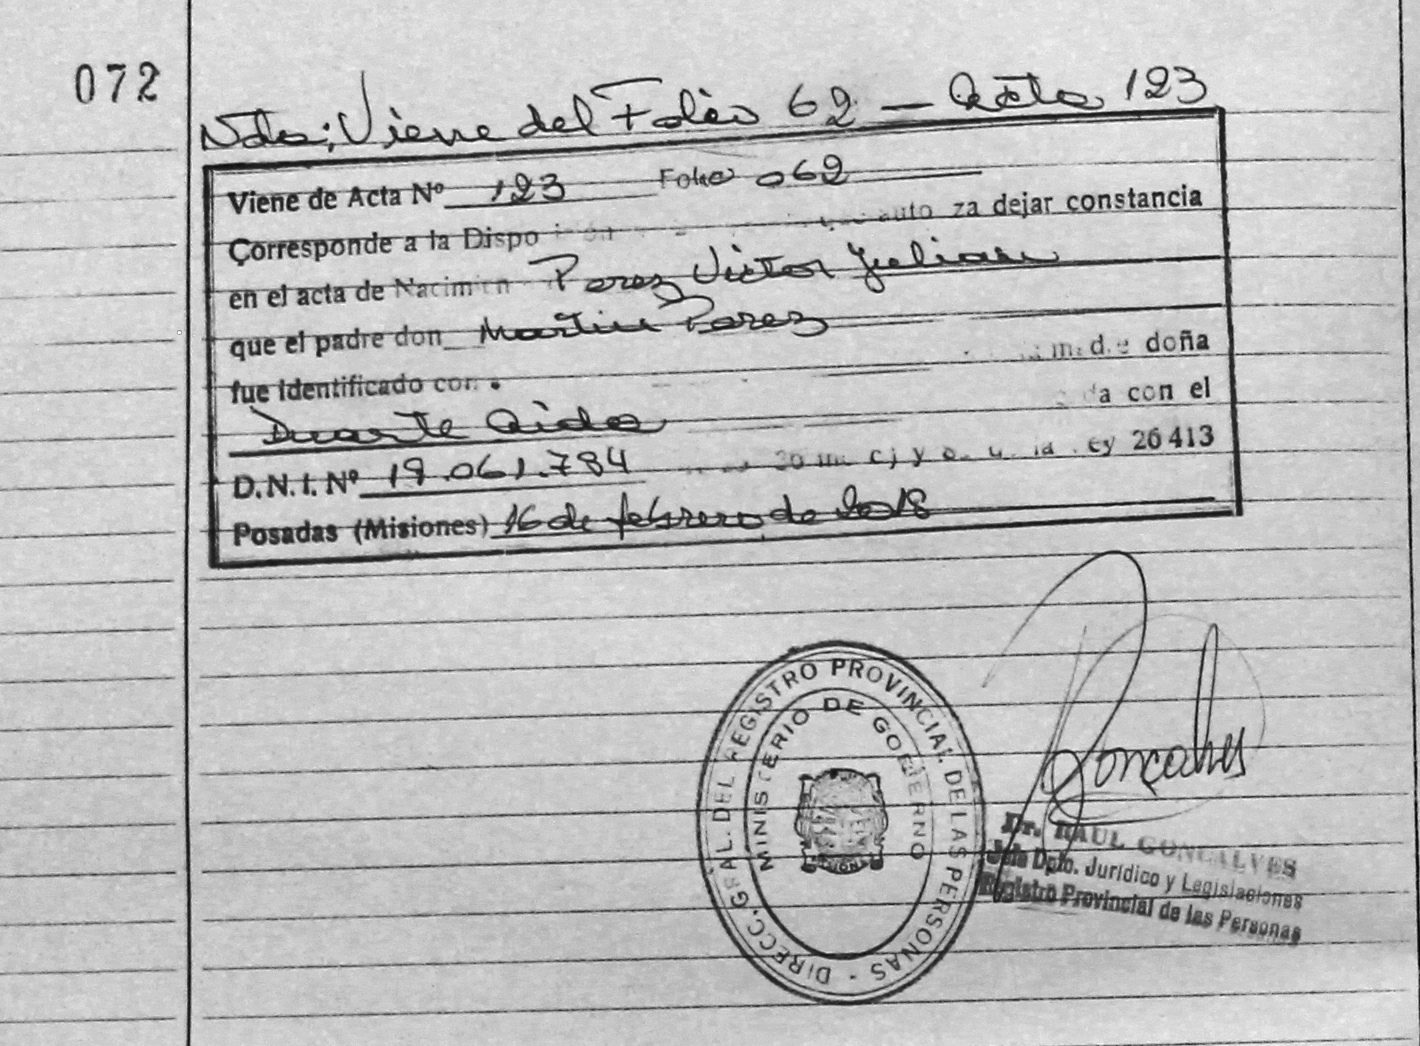 072
Nota: Viene del Folio 62 — Acta 123
Viene de Acta Nº 123 Folio 062
Corresponde a la Dispo za dejar constancia
en el acta de Nacimien Perez Victor Julian
que el padre don Martin Perez
fue identificado con doña
Duarte Aida a con el
D.N.I. Nº 19.061.784 ey 26 413
Posadas (Misiones) 16 de febrero de 2018
DIRECC. GRAL. DEL REGISTRO PROVINCIAL DE LAS PERSONAS -
MINISTERIO DE GOBIERNO
Goncalves
Dr. RAUL GONCALVES
Jefe Dpto. Jurídico y Legislaciones
Registro Provincial de las Personas